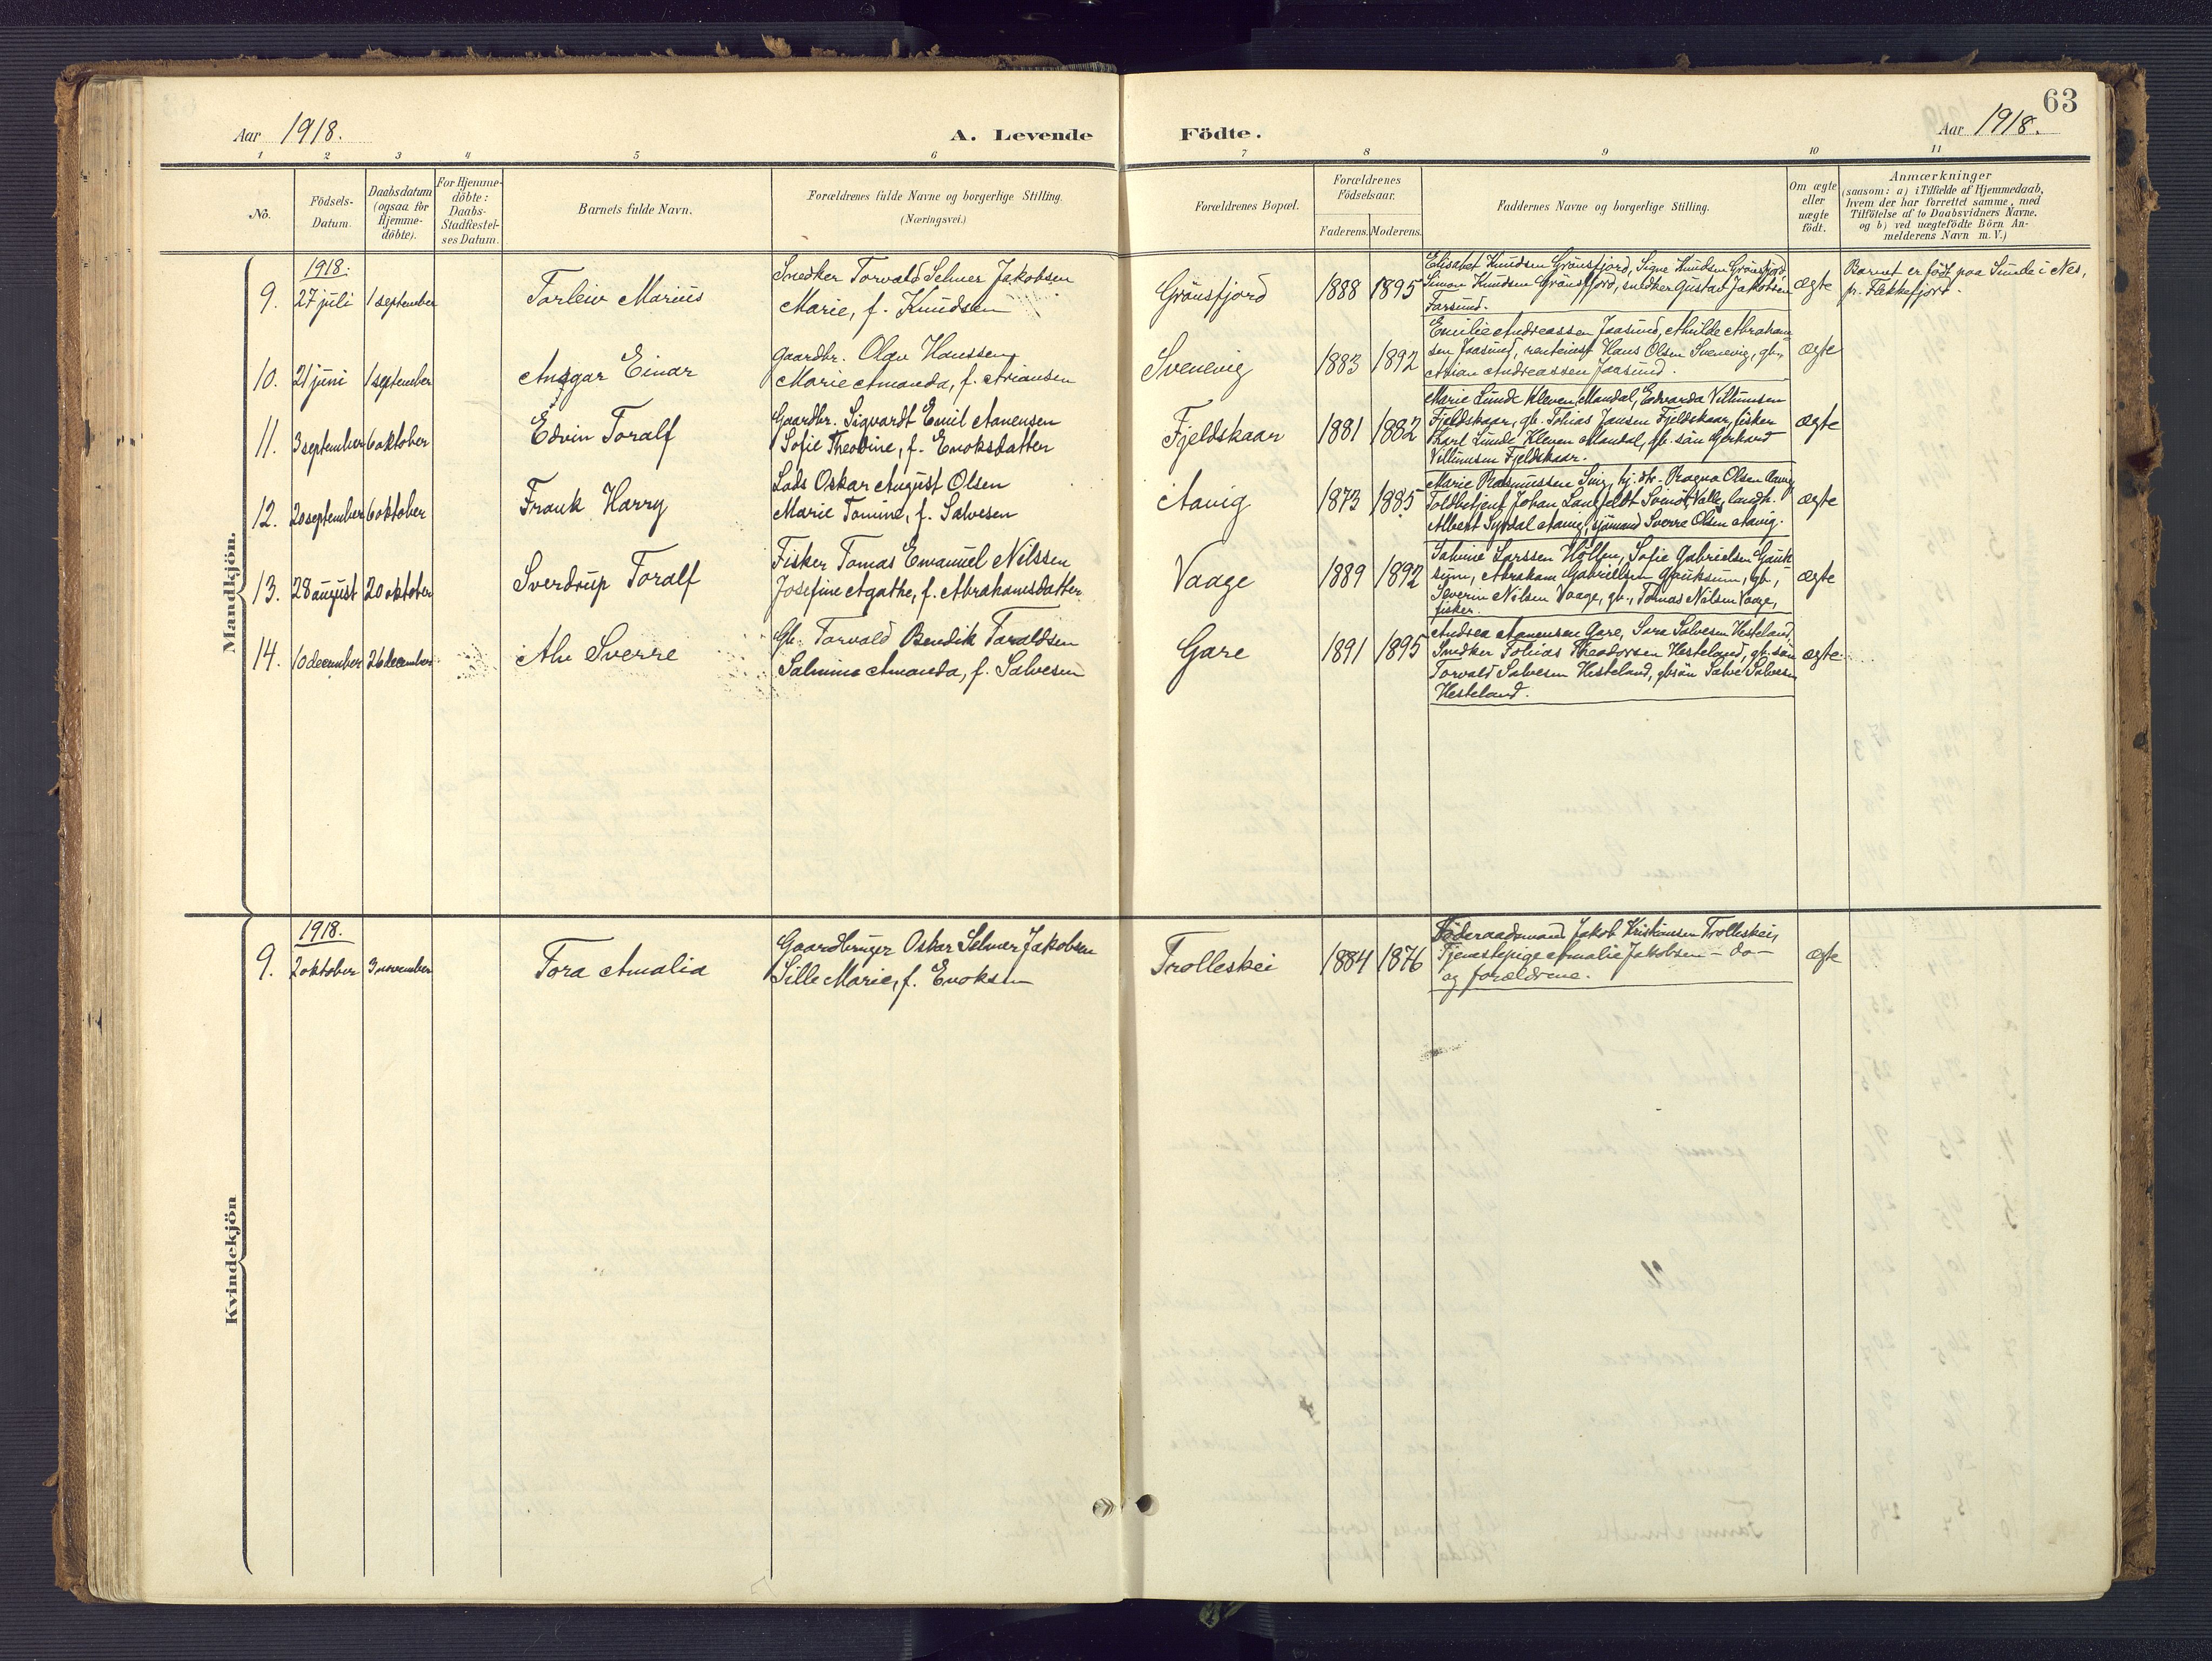 63
Aar 1918.
A. Levende Födte.
Aar 1918.
1 2 3 4 5 6 7 8 9 10 11
No.
Födsels-Datum.
Daabsdatum (ogsaa for Hjemme-döbte).
For Hjemme-döbte: Daabs-Stadfæstel-ses Datum.
Barnets fulde Navn.
Forældrenes fulde Navne og borgerlige Stilling.
(Næringsvei.)
Forældrenes Bopæl.
Forældrenes Födselsaar.
Faderens. Moderens.
Faddernes Navne og borgerlige Stilling.
Om ægte eller uægte födt.
Anmærkninger
(saasom: a) i Tilfælde af Hjemmedaab,
hvem der har forrettet samme, med
Tilföielse af to Daabsvidners Navne.
og b) ved uægtefödte Börn An-
melderens Navn m. V.)
Mandkjön.
1918.
9. 27 juli 1 september Torleiv Marius
Snedker Torvald Selmer Jakobsen
Marie, f. Knudsen
Grönsfjord 1888 1895
Elisabet Knudsen Grönsfjord, Signe Knudsen Grönsfjord,
Simon Knudsen Grönsfjord, snedker Gustav Jakobsen
Farsund.
ægte
Barnet er födt paa Sunde i Nes,
pr. Flekkefjord.
10. 21 juni 1 september Ansgar Einar
Gaardbr. Olav Hanssen
Marie Amanda, f. Ariansen
Svenevig 1883 1892
Emilie Andreassen Jaasund, Alvilde Abraham
sen Jaasund, rentenist Hans Olsen Svenevig, gb.,
Arian Andreassen Jaasund.
ægte
11. 3 september 6 oktober Edvin Toralf
Gaardbr. Sigvardt Emil Aanensen
Sofie Theodine, f. Enoksdatter
Fjeldskaar 1881 1882
Marie Lunde Kleven Mandal, Edvarda Villumsen
Fjeldskaar, gb. Tobias Jansen Fjeldskaar, fisker
Karl Lunde Kleven Mandal, gb. sön Gerhard
Villumsen Fjeldskaar.
ægte
12. 20 september 6 oktober Frank Harry
Lods Oskar August Olsen
Marie Tomine, f. Salvesen
Aavig 1873 1885
Marie Rasmussen hj. dtr. Ragna Olsen Aavig
Toldbetjent Johan Langfeldt Valle, landh.
Albert Syrdal Aavig, sjömand Sverre Olsen Aavig.
ægte
13. 28 august 20 oktober Sverdrup Toralf
Fisker Tomas Emanuel Nilssen
Josefine Agathe, f. Abrahamsdatter
Vaage 1889 1892
Larssen Höllen, Sofie Gabrielsen Gauk
sum, Abraham Gabrielsen Gauksum, gb,
Severin Nilsen Vaage, gb., Tomas Nilsen Vaage,
fisker.
ægte
14. 10 december 26 december Alv Sverre
Gb. Torvald Bendik Taraldsen
Salmine Amanda, f. Salvesen
Gare 1891 1895
Andrea Aanensen Gare, Sara Salvesen Hesteland,
Snedker Tobias Theodorsen Hesteland, gb. sön
Torvald Salvesen Hesteland, gbsön Salve Salvesen
Hesteland.
ægte.
Kvindekjön
1918.
9. 2 oktober 3 november Tora Amalia
Gaardbruger Oskar Selmer Jakobsen
Sille Marie, f. Enoksen
Trolleskei 1884 1876
Föderaadsmand Jakob Kristiansen Trolleskei,
Tjenestepige Amalie Jakobsen - do -
og forældrene.
ægte